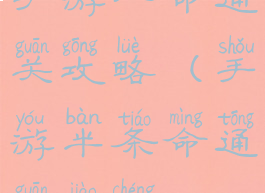 游 命通
guān gōng lüè shǒu
关攻略(手
yóu bàn tiáo mìng tōng
游半条命通
guān jiào chéng